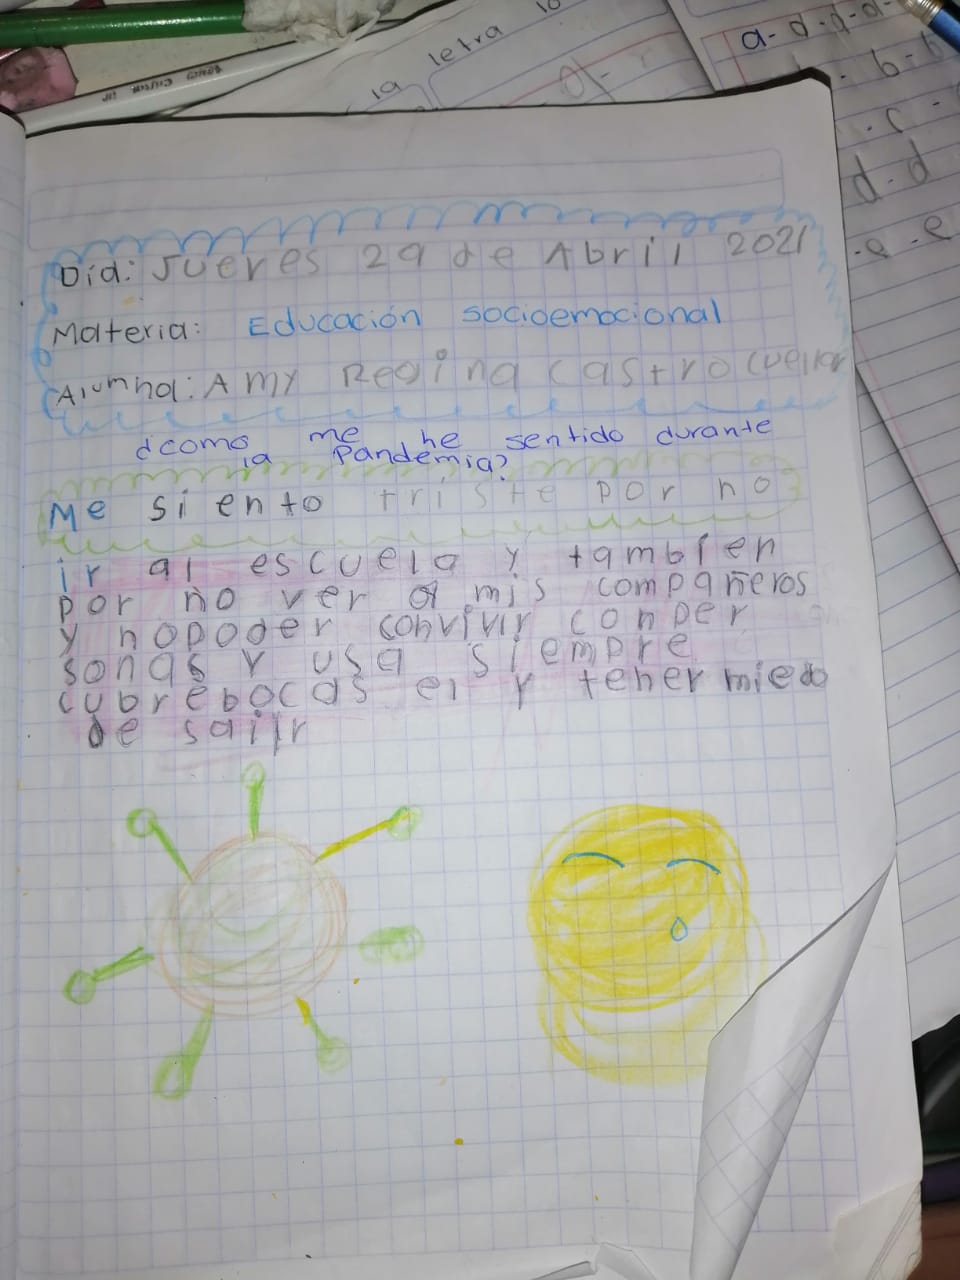 la letra
a-a-a-a-
b-b
c-
d-d
-e-e
Día: Jueves 29 de Abril 2021
Materia: Educación socioemocional
Alumna: Amy Regina Castro Cuellar
¿como me he sentido durante
la Pandemia?
Me siento triste por no
ir al escuela y tambien
por no ver a mis compañeros
y nopoder convivir conper
sonas y usa siempre
cubrebocas el y tener miedo
de salir